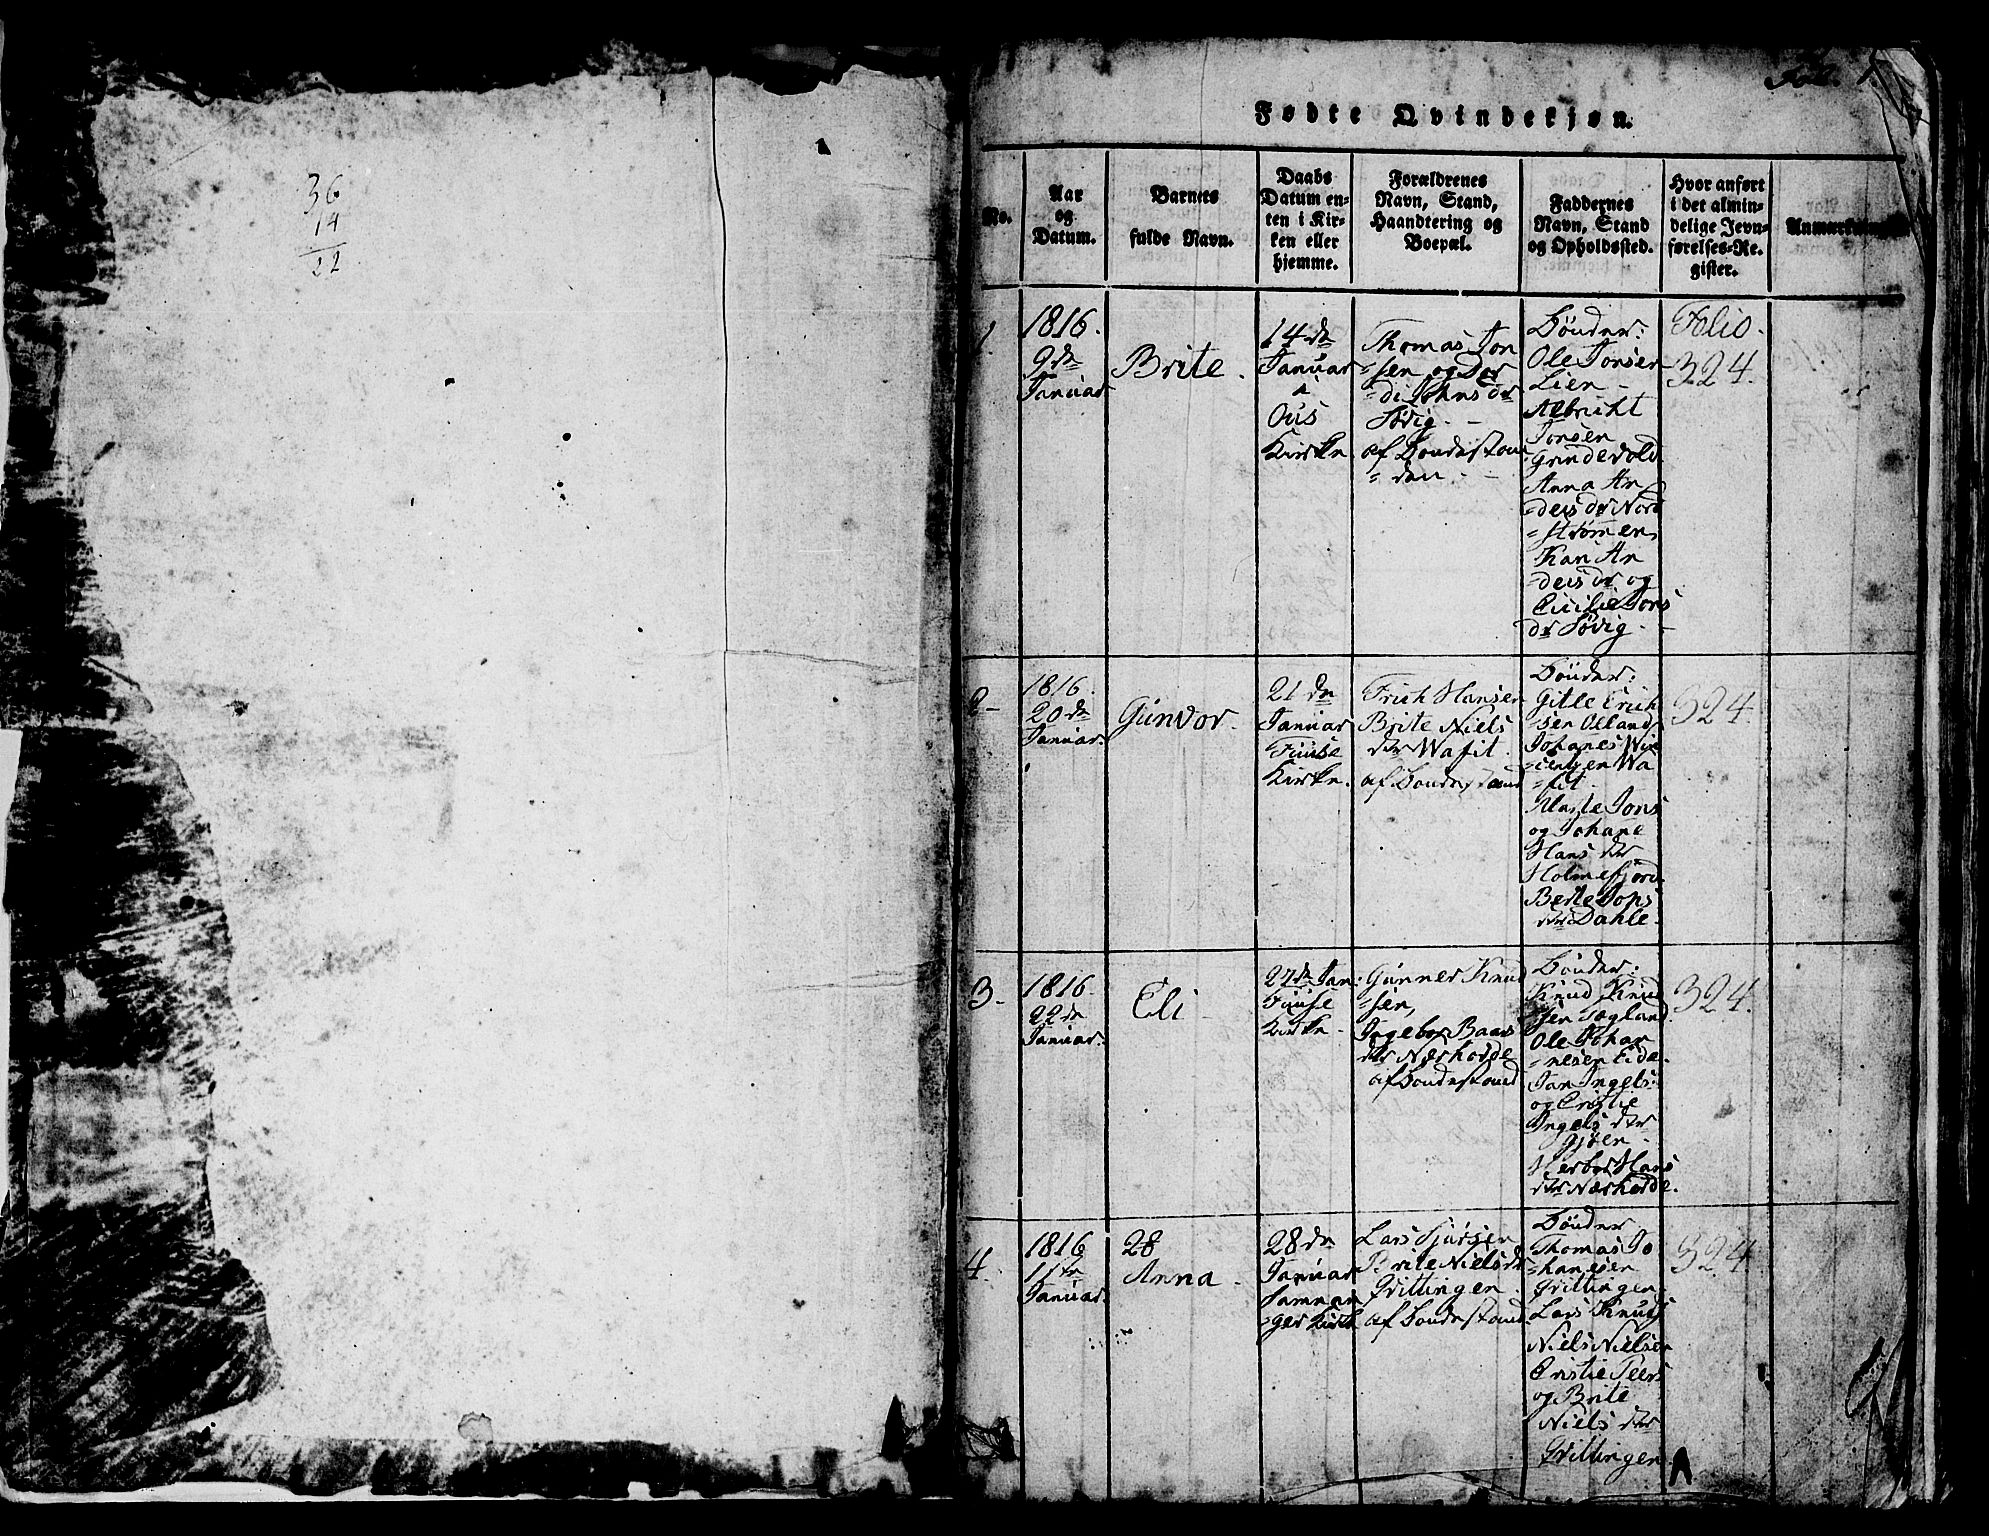 36
14
22
Fol. 1
Fødte Qvindekjøn.
No.
Aar
og
Datum.
Barnets
fulde Navn.
Daabs
Datum en-
ten i Kir-
ken eller
hjemme.
Forældrenes
Navn, Stand,
Haandtering og
Boepæl.
Faddernes
Navn, Stand
og Opholdssted.
Hvor anført
i det almin-
delige Jevn-
førelses-Re-
gister.
Anmærkning
1.
1816.
9de
Januar
Brite.
14de
Januar
i
Ous
Kirke
Thomas Jon
=sen og Ger
=di Johnsdr
Søvig. -
af Bondestan
=den. -
Bönder:
Ole Jonsen
Lien -
Albricht
Jonsen
Grindevold
Anna An
=dersdr Nord
=strømen
Kari An
=dersdr og
Cicilie Jons
dr Søvig. -
Folio.
324.
2-
1816.
20de
Januar.
Gunvor.
21de
Januar
Fuuse
Kirke.
Erich Hansen
Brite Niels
dtr Wafit.
af Bondestand
Bönder:
Gitle Erich
=sen Ölland
Johanes
Wa
=fit.
Marte Jons
og Johane
Hans dtr
Holmefjord.
Berte Jons
dtr Dahle.
324
3-
1816
22de
Januar.
Eli -
27de Jan:
Fuuse
Kirke -
Gunner Knud
=sen,
Ingebor Baars
dtr Nærhovde
af Bondestand
Bönder:
Knud Knud
=sen Søgland.
Ole Johan
=nesen Eide.
Jan Ingels:
og Cristie
Ingels dtr
Gjøen -
Herbor Hans
dtr Nærhovde.
324.
4.
1816
11te
Januar.
28
Anna.
28de
Januar
Samnan
=ger Kirke
Lars Sjursen
Brite Nielsdr
Grittingen.
af Bondestand.
Bönder
Thomas Jo
=hanesen
Grittingen
Lars Knuds
Niels Nielsen
Cristie Peers
og Brite
Niels dtr
Grittingen
324